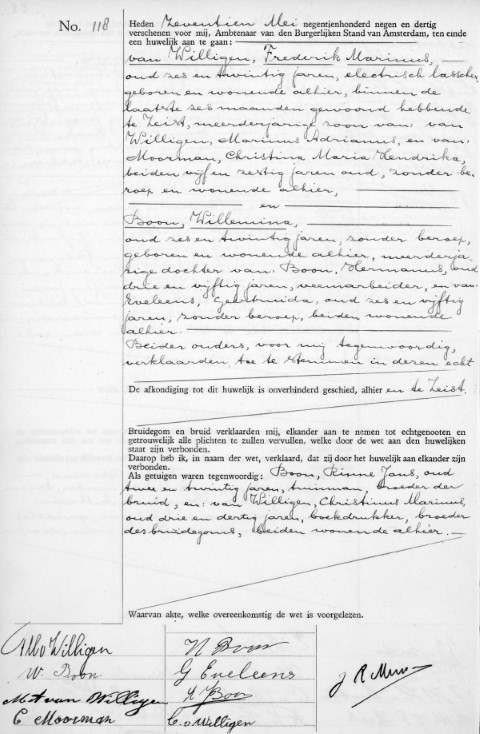 No. 118
Heden Zeventien Mei negentienhonderd negen en dertig
verschenen voor mij, Ambtenaar van den Burgerlijken Stand van Amsterdam, ten einde
een huwelijk aan te gaan:
van Willigen, Frederik Marinus,
oud zes en twintig jaren, electrisch lasscher,
geboren en wonende alhier, binnen de
laatste zes maanden gewoond hebbende
te Zeist, meerderjarige zoon van: van
Willigen, Marinus Adrianus, en van
Moorman, Christina Maria Hendrika,
beiden vijf en zestig jaren oud, zonder be-
roep en wonende alhier,
en
Boon, Willemina,
oud zes en twintig jaren, zonder beroep,
geboren en wonende alhier, meerderja-
rige dochter van: Boon, Hermanus, oud
drie en vijftig jaren, veemarbeider, en van
Eveleens, Geertruida, oud zes en vijftig
jaren, zonder beroep, beiden wonende
alhier.
Beider ouders, voor mij tegenwoordig,
verklaarden toe te stemmen in deren echt
De afkondiging tot dit huwelijk is onverhinderd geschied, alhier en te Zeist.
Bruidegom en bruid verklaarden mij, elkander aan te nemen tot echtgenooten en
getrouwelijk alle plichten te zullen vervullen, welke door de wet aan den huwelijken
staat zijn verbonden.
Daarop heb ik, in naam der wet, verklaard, dat zij door het huwelijk aan elkander zijn
verbonden.
Als getuigen waren tegenwoordig: Boon, Rinne Jans, oud
twee en twintig jaren, tuinman, broeder der
bruid, en: van Willigen, Christinus Marinus,
oud drie en dertig jaren, boekdrukker, broeder
des bruidegoms, beiden wonende alhier.
Waarvan akte, welke overeenkomstig de wet is voorgelezen.
Willigen
H Boon
W. Boon
G Eveleens
M A van Willigen
Boon
C Moorman
C. v Willigen